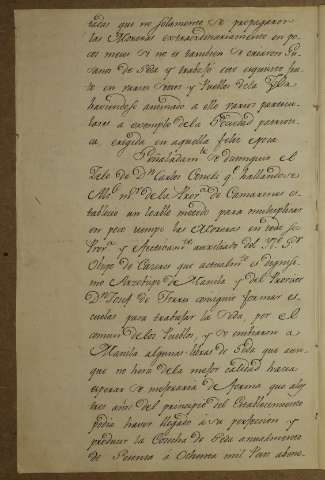 tadas que no solamente se propagaron
las Moreras extraordinariamente en po
cos meses sino es tambien se criaron Gu
sanos de Seda y trabajó con exquisito fru
to en varios Pueblos de la Ysla
haviendose animado a ello varios particu
lares a exemplo de la Sociedad patrioti
ca erigida en aquella feliz epoca
Señaladam.te se distinguio el
Zelo de D.n Carlos Coneli q.e hallandose
Alc.e m.or de la Prov.a de Camarines es
tableció un loable metodo para multiplicar
en poco tiempo las Moreras en toda su
Prov.a y efectivam.te auxiliado del
Obpo de Caceres que actualm.te es dignisi
mo Arzobispo de Manila y del Parroco
D.n Josef de consiguió formar es
cuelas para trabajar la Seda, por el
comun de los Pueblos, y se embiaron a
Manila algunas libras de Seda que aun
que no hera de la mejor calidad hacia
esperar se mejoraria de forma que alos
tres años del principio del Establecimiento
podia haver llegado a su perfeccion y
producir la Cosecha de Seda anualmente
de Setenta á Ochenta mil Pesos